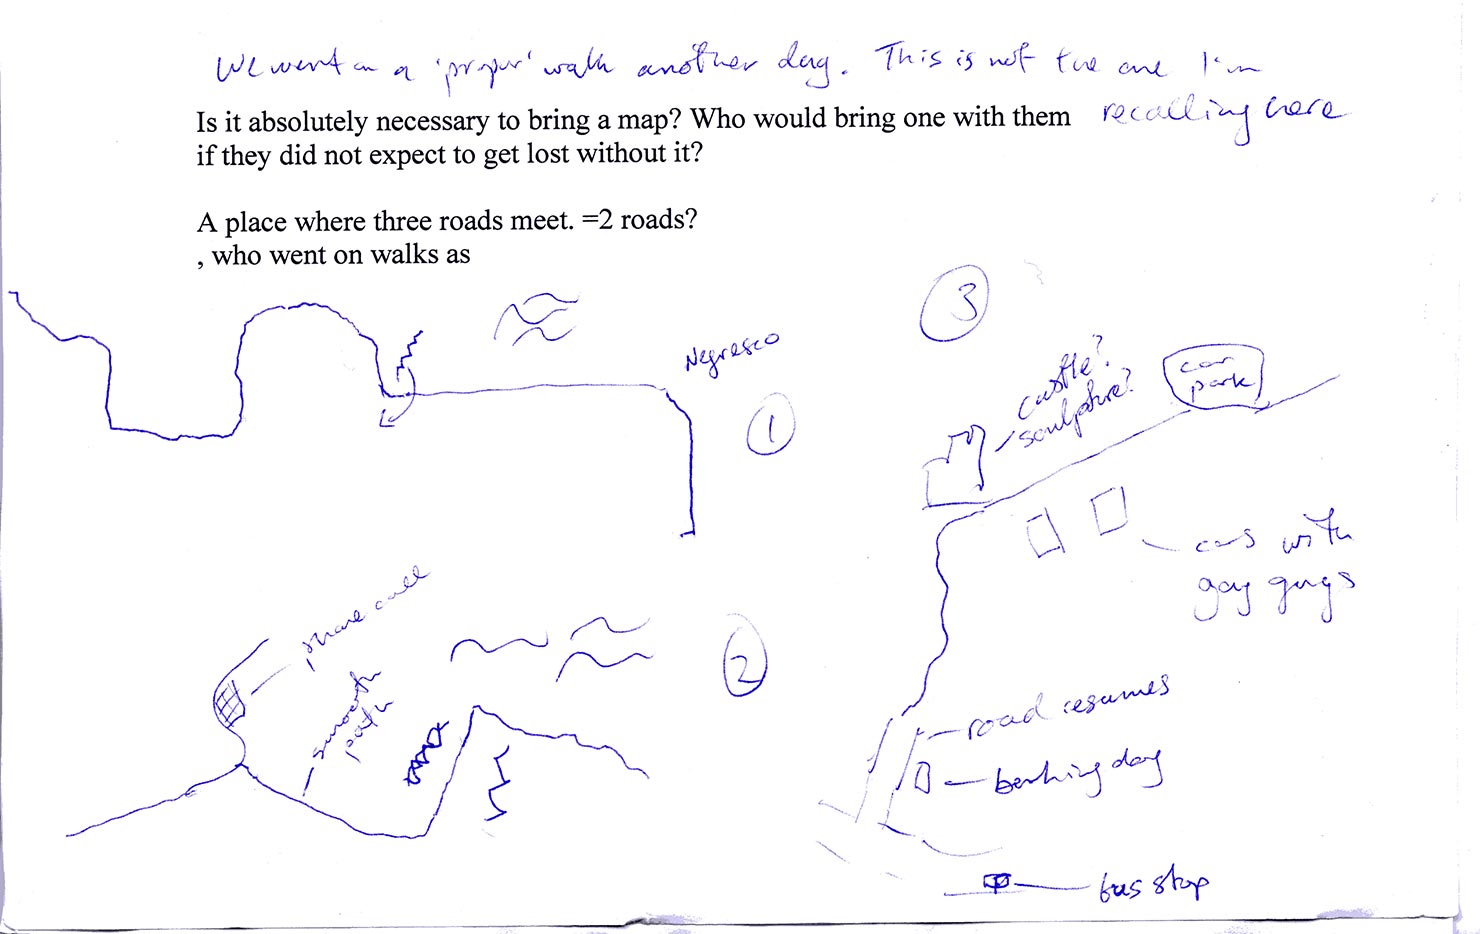 We went on a 'proper' walk another day. This is not the one I'm
recalling here
Is it absolutely necessary to bring a map? Who would bring one with them
if they did not expect to get lost without it?
A place where three roads meet. =2 roads?
, who went on walks as
Negresco
1
phone call
smooth
path
2
3
castle?
sculpture?
car
park
cars with
gay guys
road resumes
barking dog
bus stop